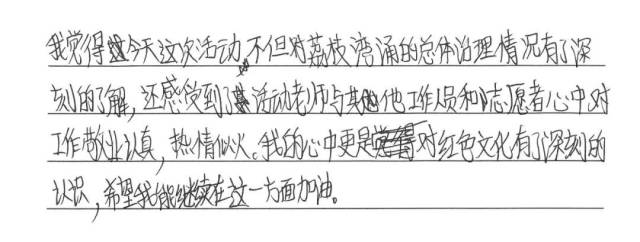 我觉得今天这次活动，不但对荔枝湾涌的总体治理情况有了深
刻的了解，还感受到了活动老师与其他工作人员和志愿者心中对
工作敬业认真，热情似火。我的心中更是对红色文化有了深刻的
认识，希望我能继续在这一方面加油。